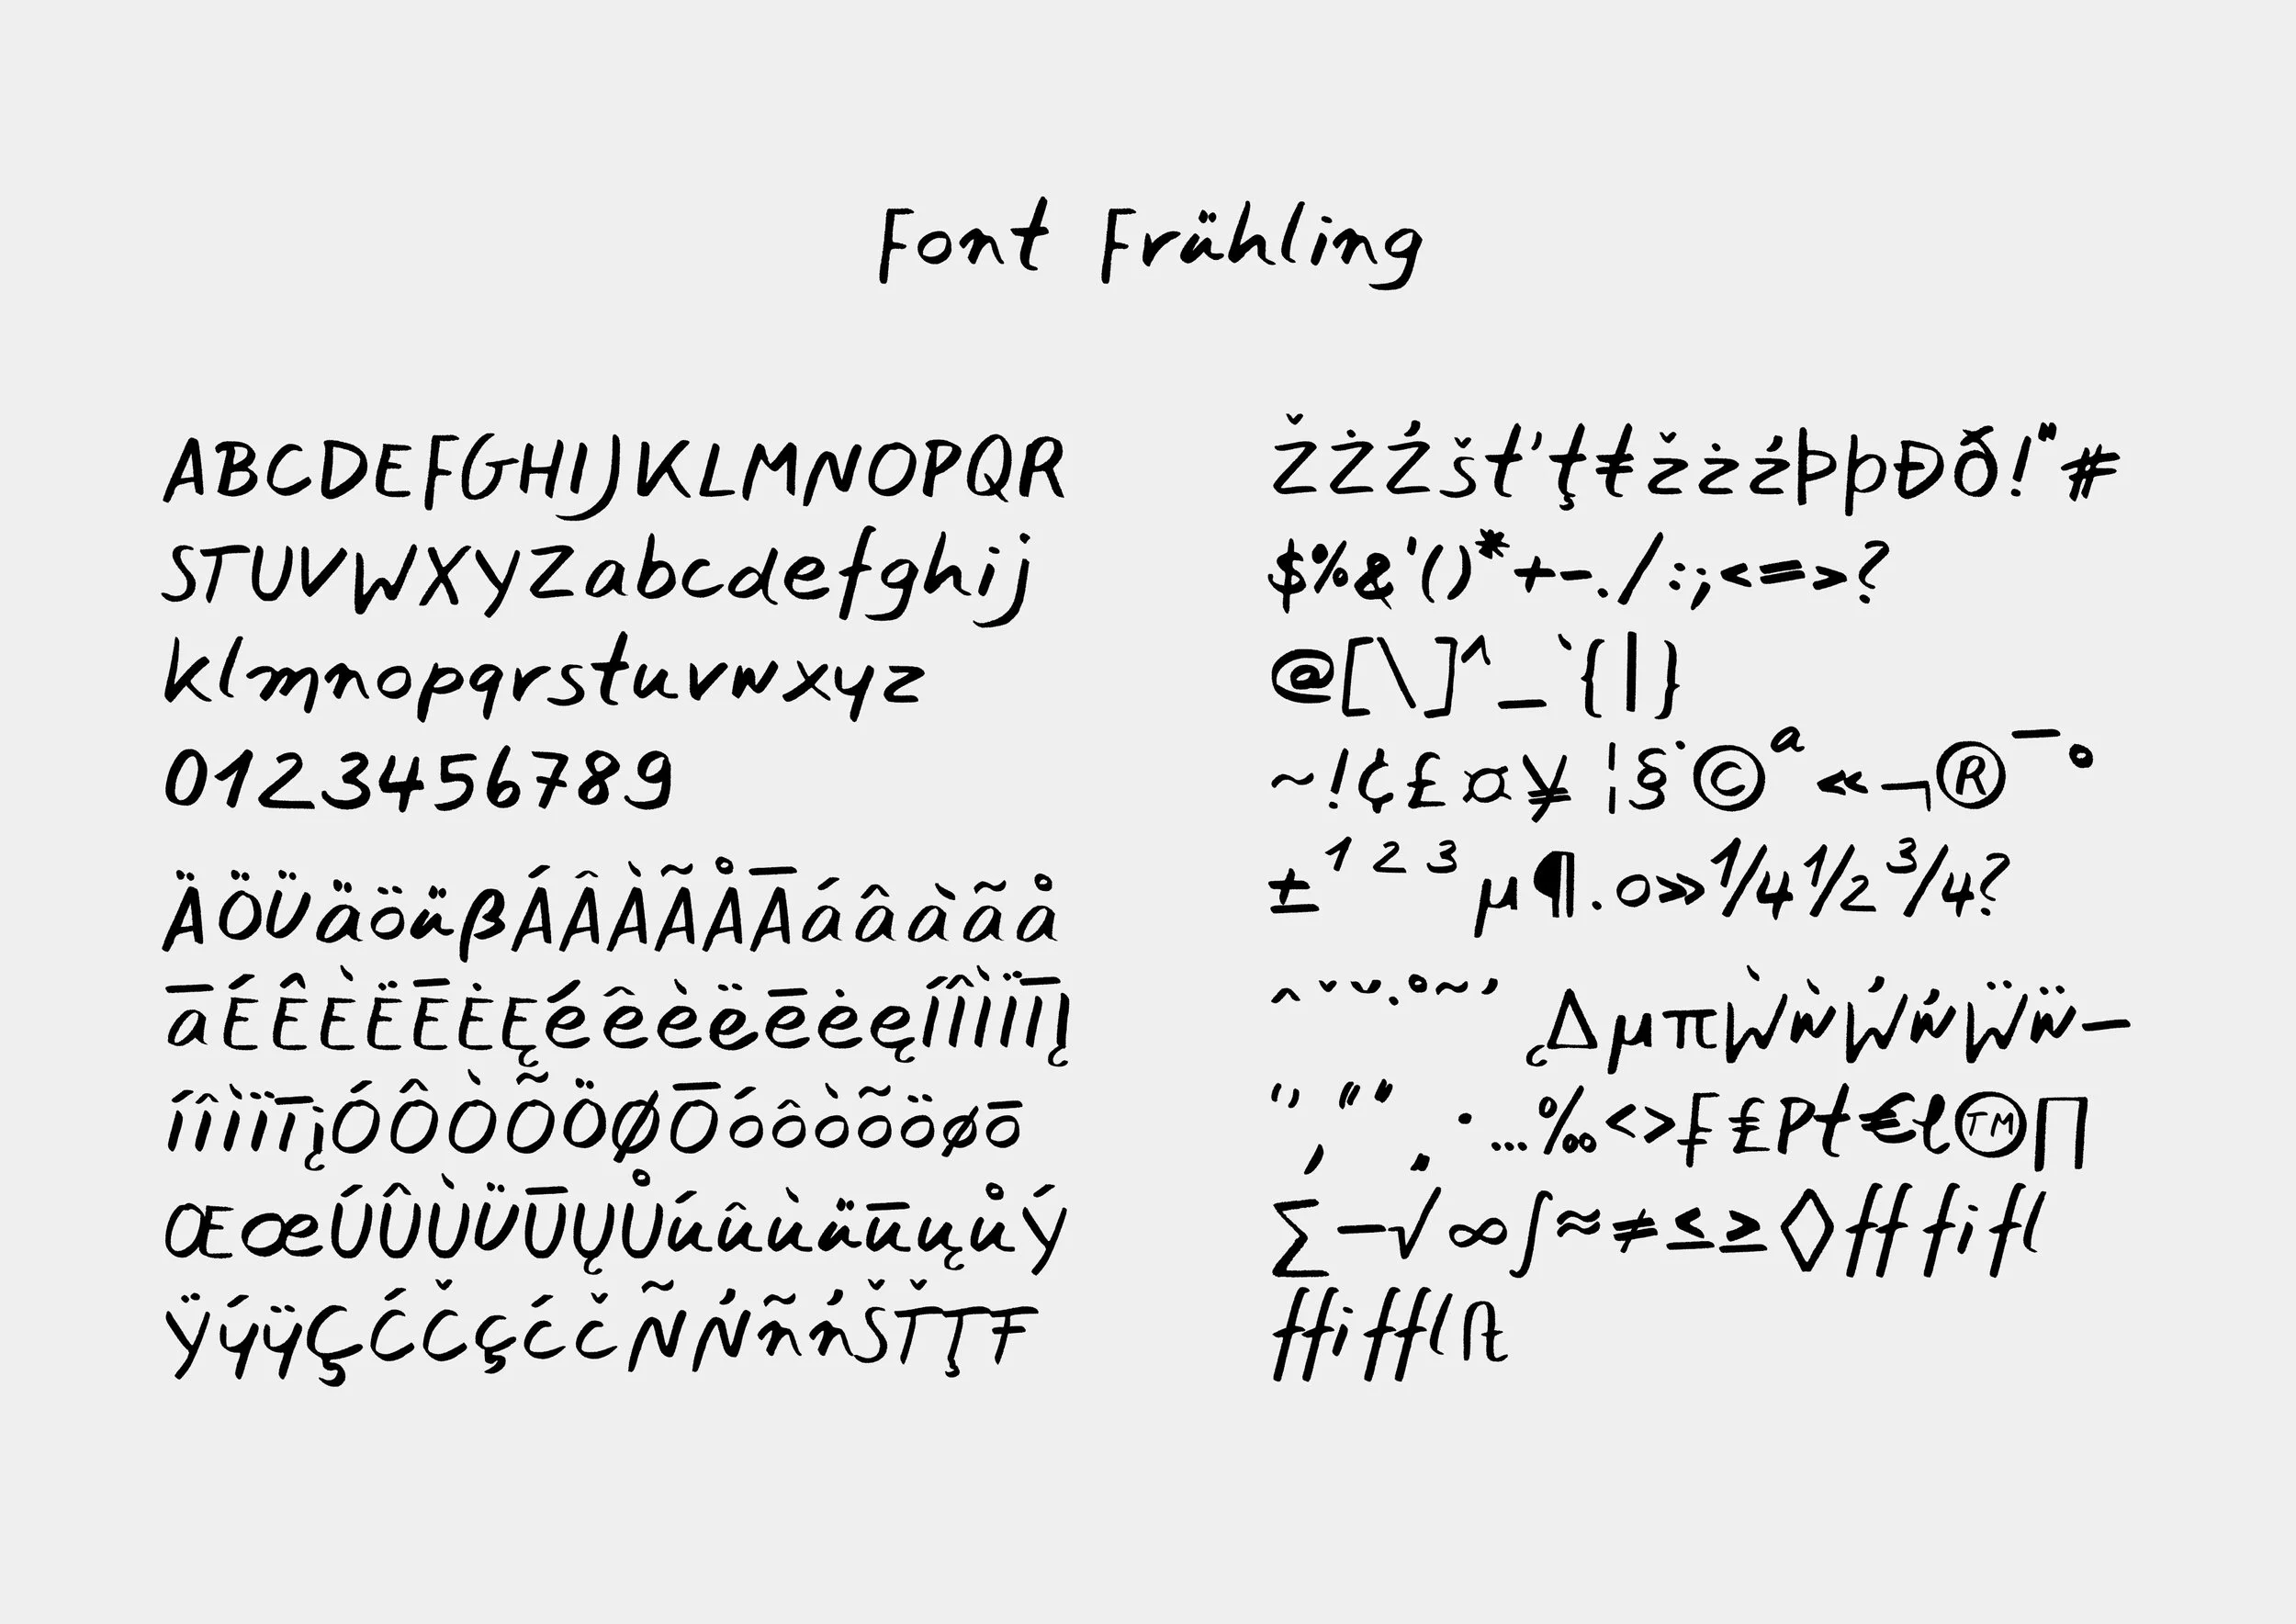 Font Frühling
ABCDEFGHIJKLMNOPQR
STUVWXYZabcdefghij
klmnopqrstuvwxyz
0123456789
ÄÖÜäöüßÁÂÀÃÅĀáâàãå
āÉÊÈËĒĖĘéêèëēėęÍÎÌÏĪĮ
íîìïīįÓÔÒÕÖØŌóôòõöøō
ŒœÚÛÙÜŪŲŮúûùüūųůÝ
ŸýÿÇĆČçćčÑŃñńŠŤŢŦ
ŽŻŹšťţŧžżźÞþÐð!"#
$%&'()*+-./:;<=>?
@[\]^_`{|}
~!¢£¤¥¦§¨©ª«¬®¯°
±¹²³µ¶.º»¼½¾?
ˆˇ˘˙˚˜˝¸∆μπẀẁẂẃẄẅ–
‘’“”‚„·…‰‹›₣₤₧€ℓ™∏
∑−√∞∫≈≠≤≥◊fffifl
ffifflſt